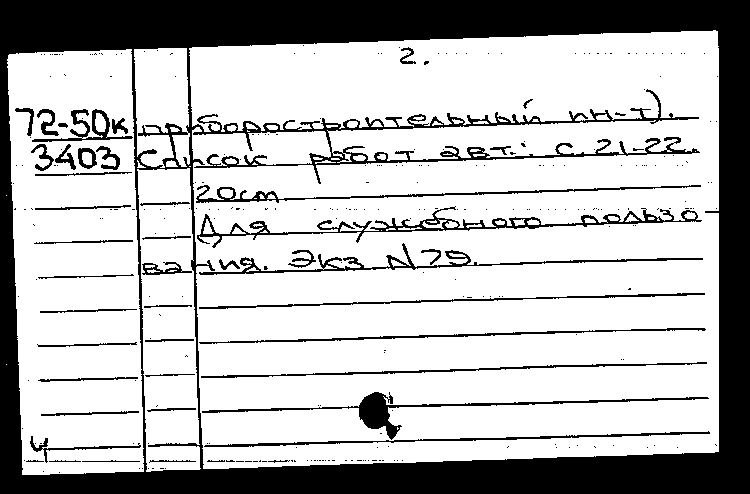 2.
72-50к приборостроительный ин-т).
3403 Список работ авт.: с. 21-22.
20cm
Для служебного пользо-
вания. Экз N 79.
ч